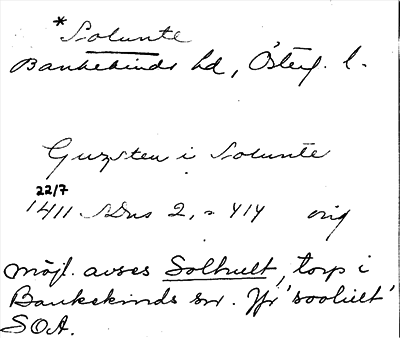 *Solunte
Bankekinds hd, Österg. l.
Guzsten i Solunte
22/7
1411 SDns 2, s 414 orig
Möjl. avses Solhult, torp i
Bankekinds sn. Jfr 'soolielt'
SOA.